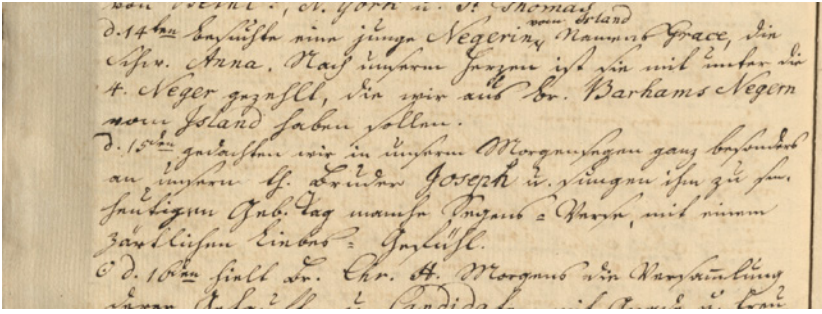 von Bethl:, N. York u. St Thomas
d. 14ten besuchte eine junge Negerin vom Island Namens Grace, die
Schw. Anna. Nach unserm Herzen ist sie mit unter die
4. Neger gezehlt, die wir aus Br. Barhams Negern
vom Island haben sollen.
d. 15den gedachten wir in unserm Morgensegen ganz besonders
an unsern th. Bruder Joseph u. sungen ihm zu sm.
heutigen Geb. Tag manche Segens-Verse, mit einem
zärtlichen Liebes-Gefühl.
d. 16den hielt Br. Chr. H. Morgens die Versamlung
derer Getauft u. Candidaten mit u. treu